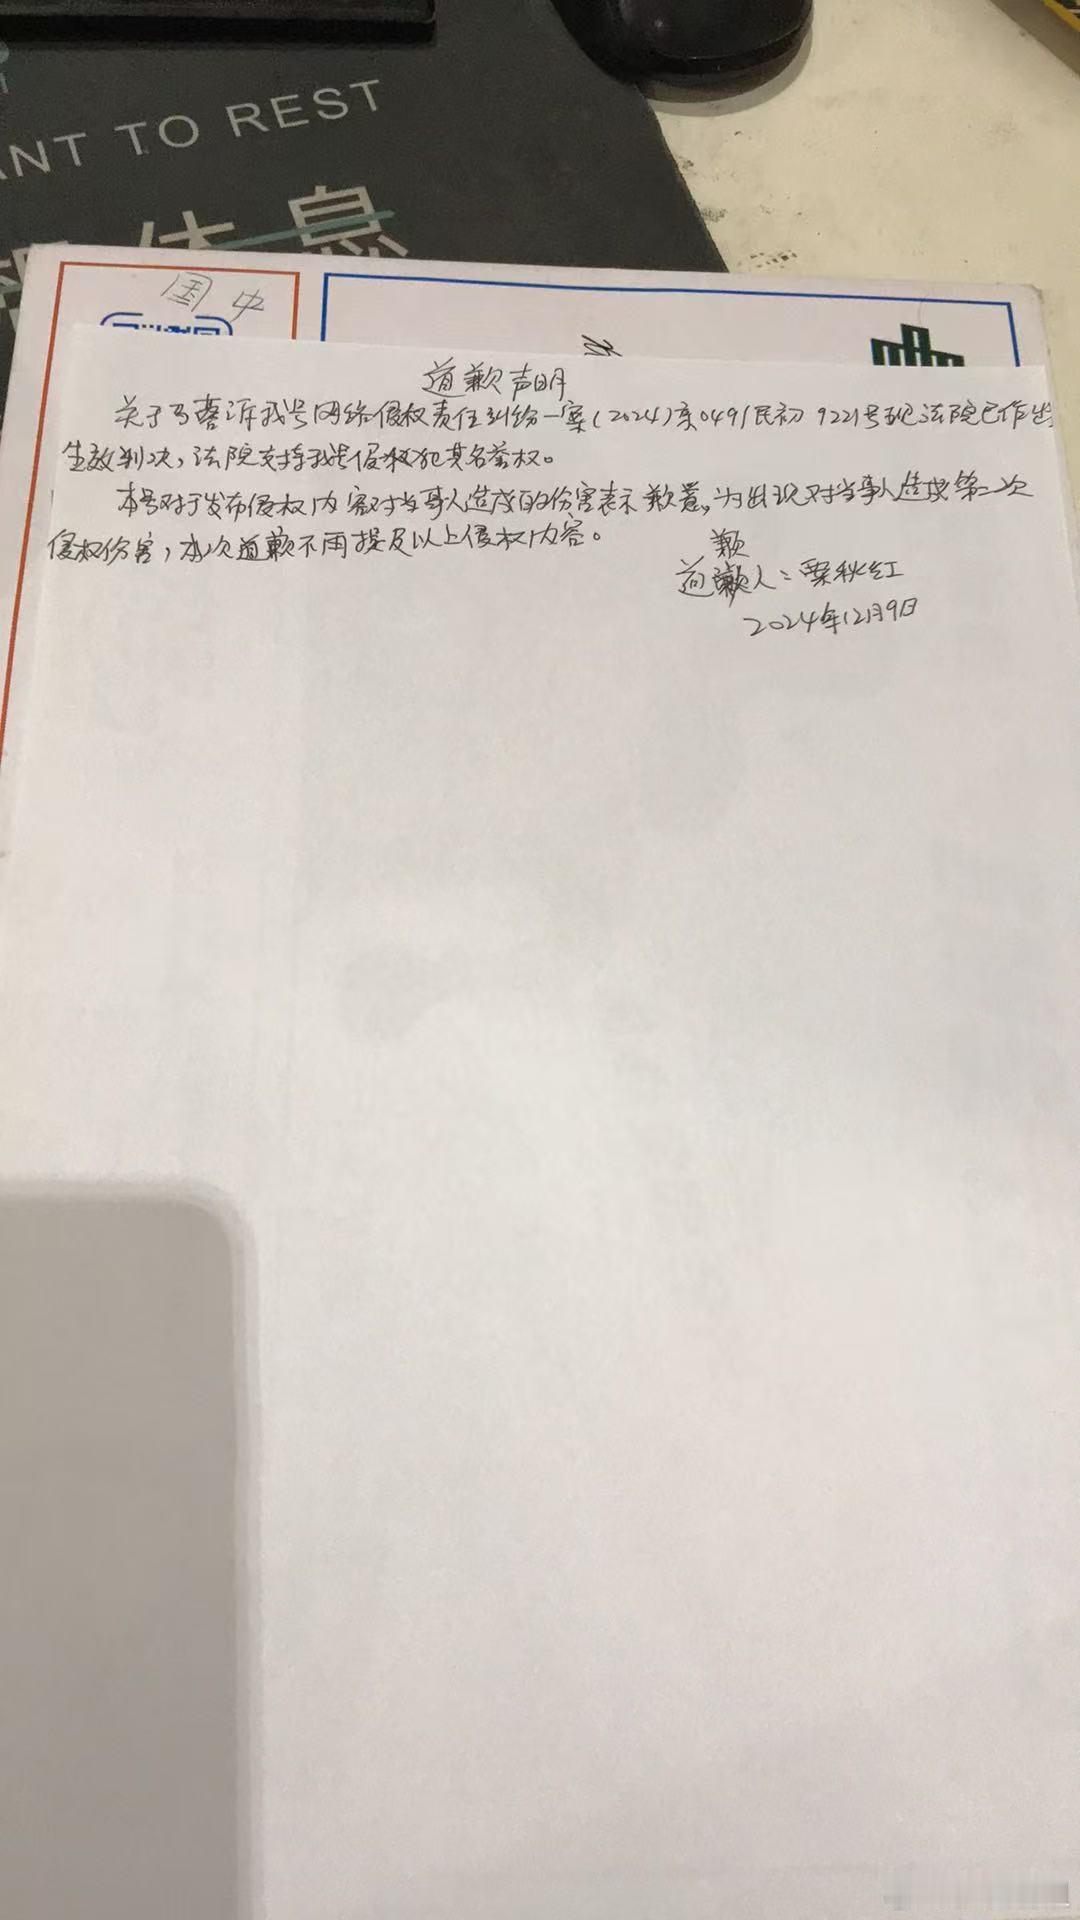 ANT TO REST
休息
国 中
道歉声明
关于马蓉诉我号网络侵权责任纠纷一案(2024)京0491民初9221号现法院已作出
生效判决,法院支持我号侵权犯其名誉权。
本号对于发布侵权内容对当事人造成的伤害表示歉意。为出现对当事人造成第二次
侵权伤害,本次道歉不再提及以上侵权内容。
歉
道歉人:栗秋红
2024年12月9日